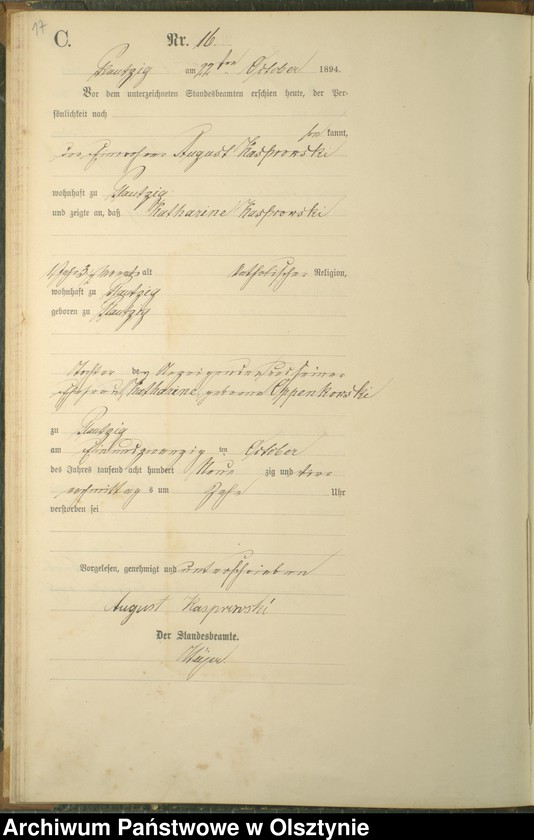 17
C. Nr. 16.
Plautzig am 22ten October 1894.
Vor dem unterzeichneten Standesbeamten erschien heute, der Per-
sönlichkeit nach
be kannt,
der Einwohner August Kasprowski
wohnhaft zu Plautzig
und zeigte an, daß Katharine Kasprowski
1 Jahr 3 Monate alt katholischer Religion,
wohnhaft zu Plautzig
geboren zu Plautzig
Tochter des Anzeigenden und seiner
Ehefrau Katharine geborene Oppenkowski
zu Plautzig
am Einundzwanzig ten October
des Jahres tausend acht hundert Neun zig und vier
vormittag s um Uhr
verstorben sei
Vorgelesen, genehmigt und unterschrieben
August Kasprowski
Der Standesbeamte.
Archiwum Państwowe w Olsztynie